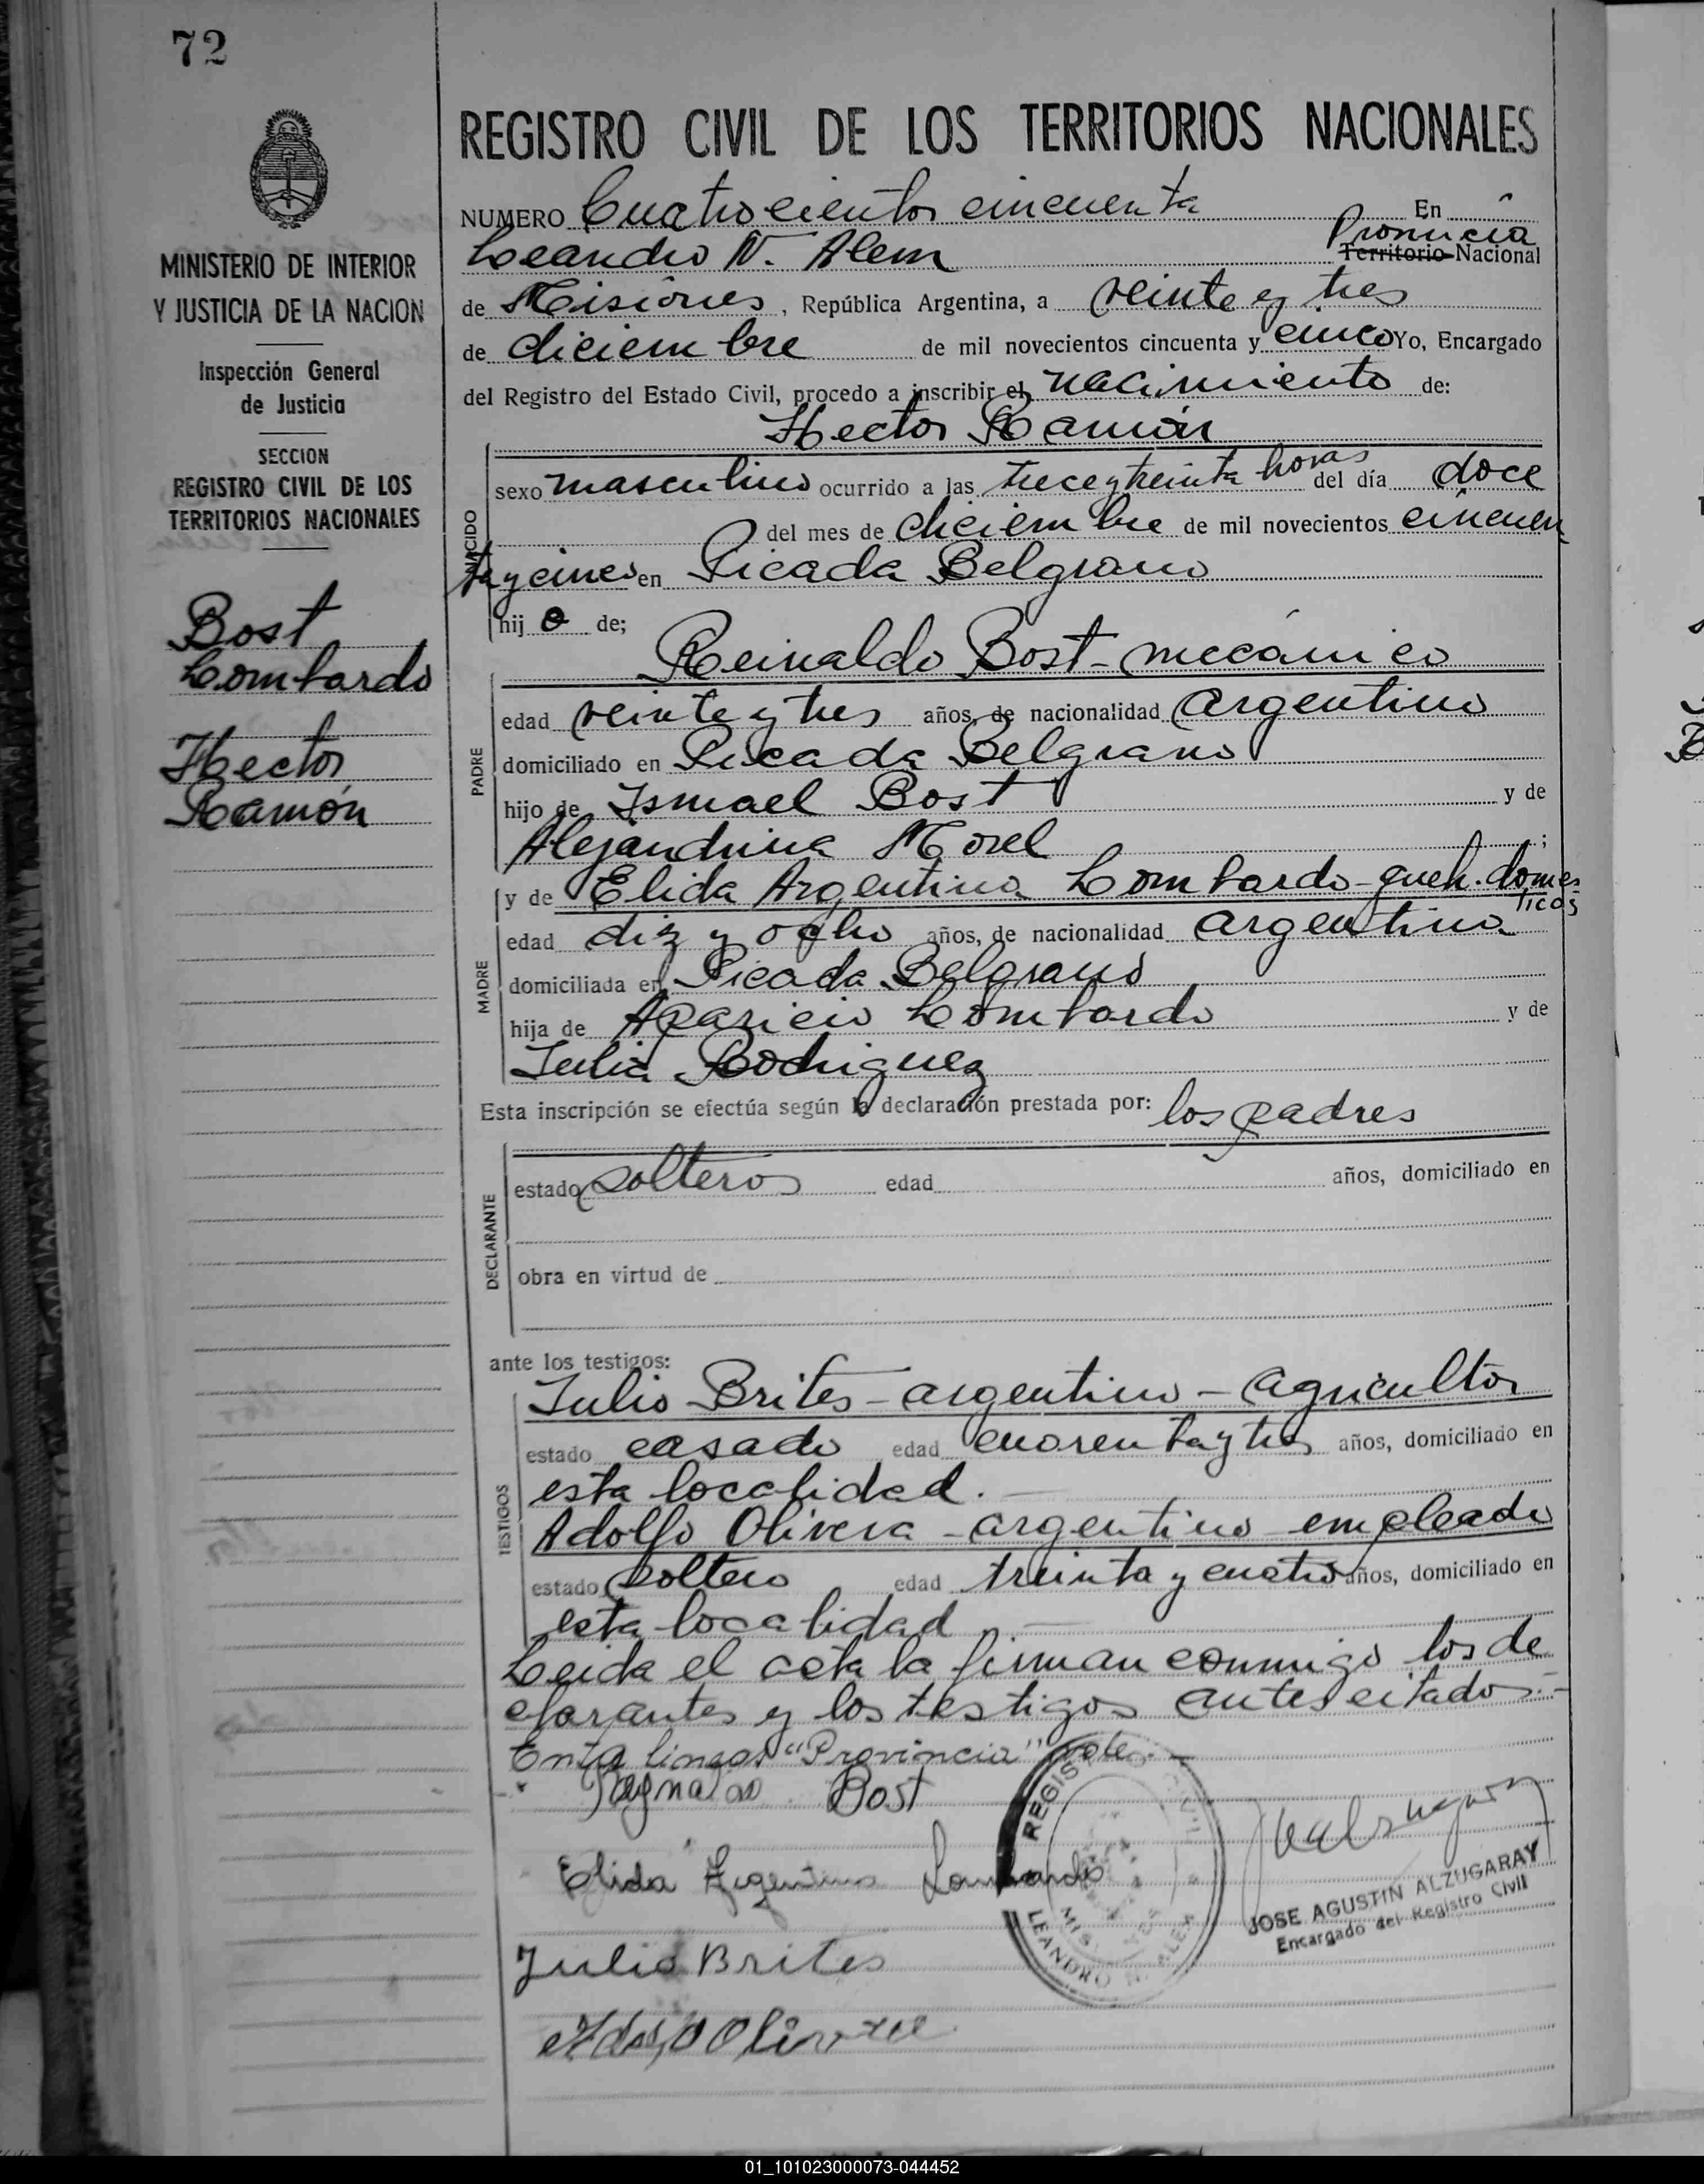 72
MINISTERIO DE INTERIOR
Y JUSTICIA DE LA NACION
Inspección General
de Justicia
SECCION
REGISTRO CIVIL DE LOS
TERRITORIOS NACIONALES
Bost
Lombardo
Hector
Ramón
REGISTRO CIVIL DE LOS TERRITORIOS NACIONALES
NUMERO Cuatrocientos cincuenta En
Leandro N. Alem Provincia Territorio Nacional
de Misiones, República Argentina, a veinte y tres
de diciembre de mil novecientos cincuenta y cinco Yo, Encargado
del Registro del Estado Civil, procedo a inscribir el nacimiento de:
Hector Ramón
NACIDO
sexo masculino ocurrido a las trece y treinta horas del día doce
del mes de diciembre de mil novecientos cincuen
ta y cinco en Picada Belgrano
hijo de;
Reinaldo Bost - mecánico
PADRE
edad veinte y tres años, de nacionalidad argentino
domiciliado en Picada Belgrano
hijo de Ismael Bost y de
Alejandrina Morel ;
y de Elida Argentina Lombardo - queh. domes
ticos
MADRE
edad diz y ocho años, de nacionalidad argentina
domiciliada en Picada Belgrano
hija de Aparicio Lombardo y de
Julia Rodriguez
Esta inscripción se efectúa según la declaración prestada por: los padres
DECLARANTE
estado solteros edad años, domiciliado en
obra en virtud de
ante los testigos:
TESTIGOS
Julio Brites - argentino - agricultor
estado casado edad cuarenta y tres años, domiciliado en
esta localidad.
Adolfo Olivera - argentino - empleado
estado soltero edad treinta y cuatro años, domiciliado en
esta localidad
Leida el acta la firman conmigo los de
clarantes y los testigos antes citados.-
Entre lineas "Provincia" vale. -
Reynaldo Bost
Elida Argentina Lombardo
REGISTRO CIVIL
MISIONES
LEANDRO N. ALEM
JOSE AGUSTIN ALZUGARAY
Encargado del Registro Civil
Julio Brites
Adolfo Olivera
01_101023000073-044452